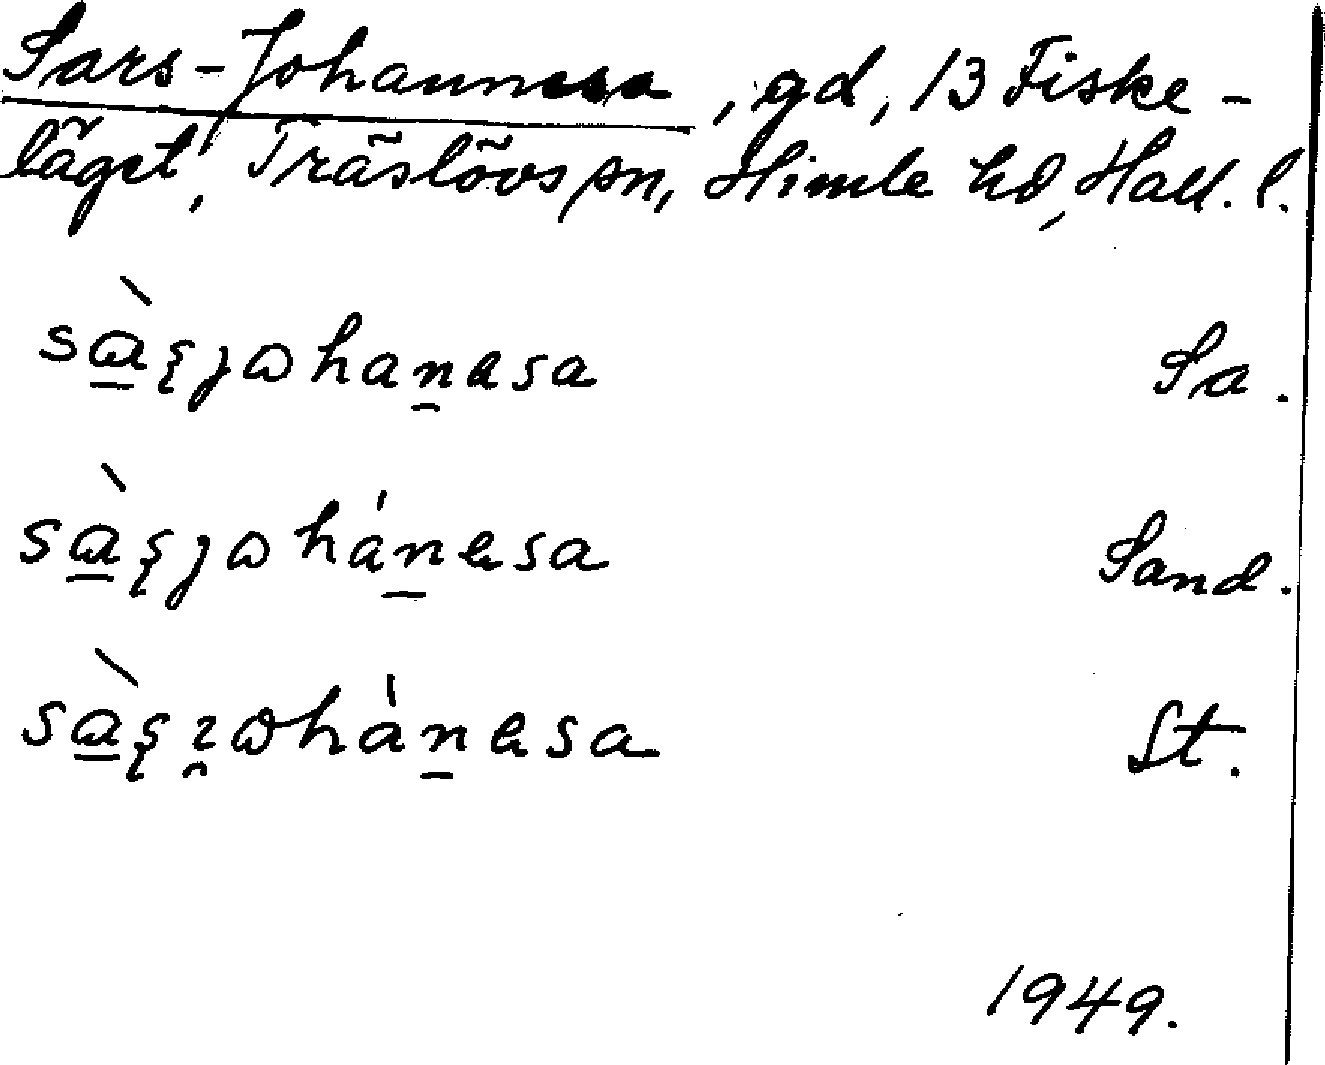 Sars-Johannesa, gd, 13 Fiske-
läget, Träslövs sn, Himle hd, Hall. l.
sàşȷωhanesa Sa.
sàşȷωhánesa Sand.
sàşʐωhánesa St.
1949.